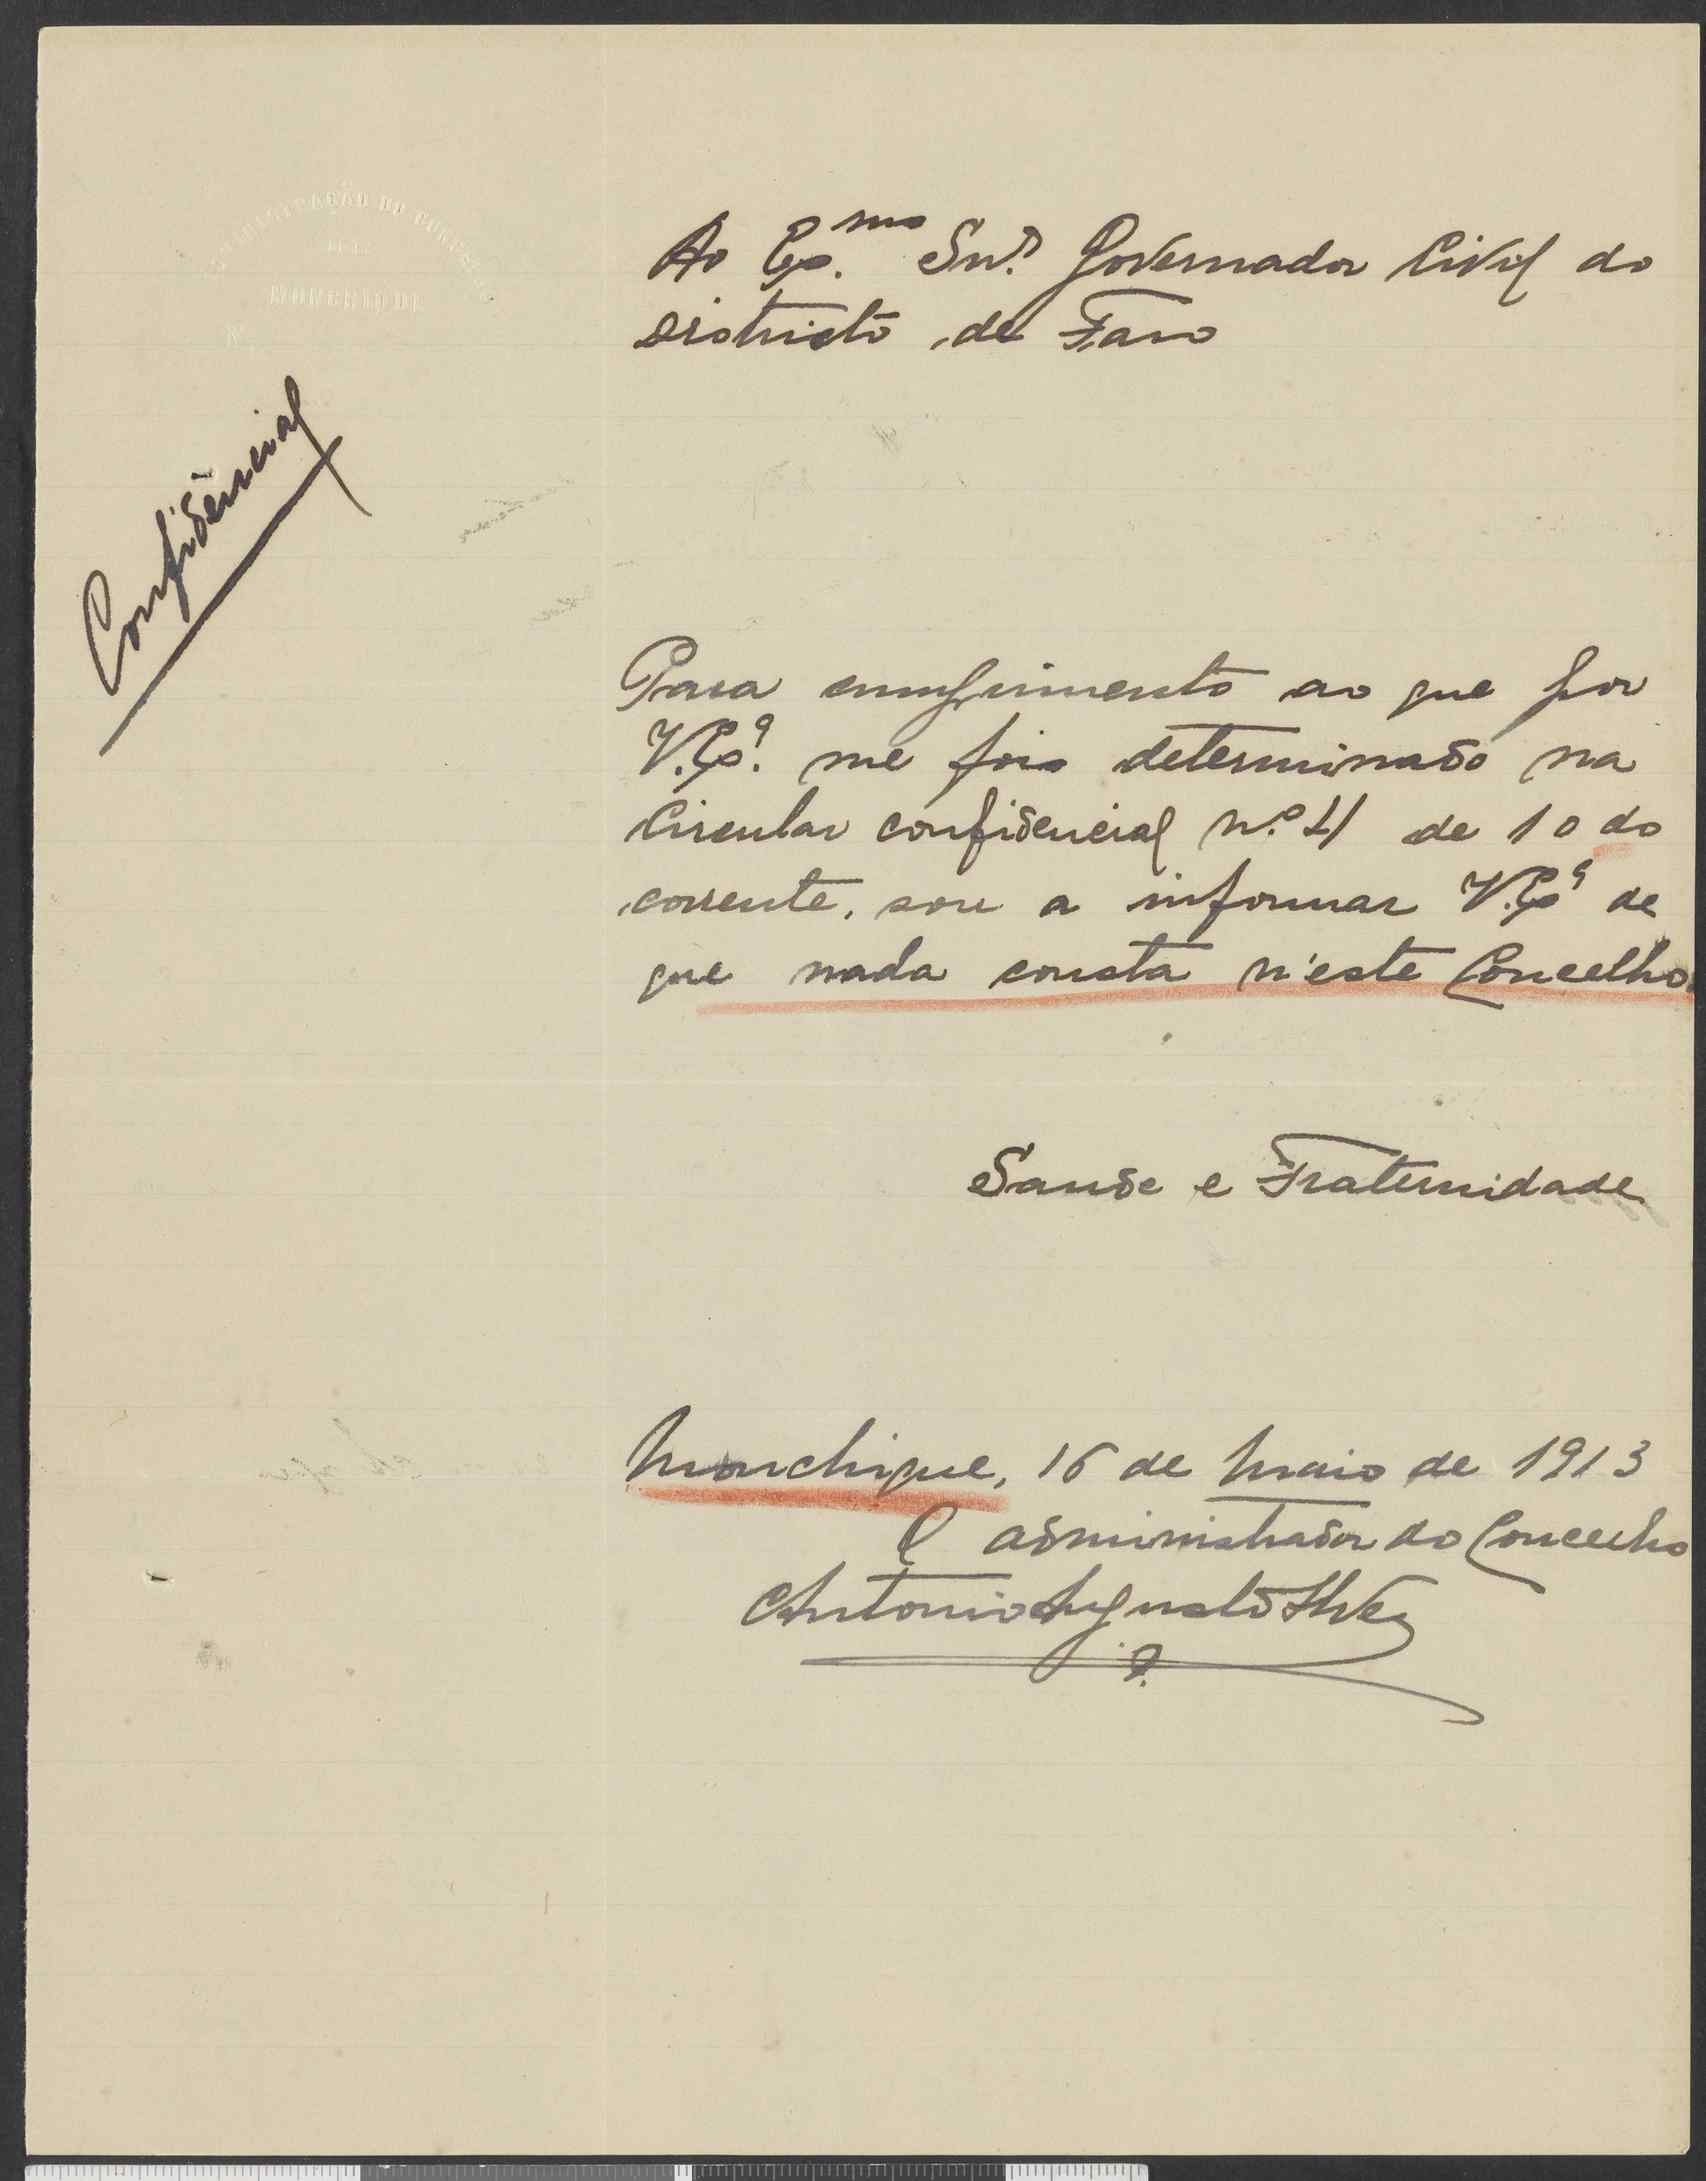 ADMINISTRAÇÃO DO CONCELHO
DE
MONCHIQUE
Ao Ex.mo Snr. Governador Civil do
Districto de Faro
Confidêncial
Para cumprimento ao que por
V. Ex.ª me fois determinado na
Circular confidencial n.º 4 de 10 do
corrente, sou a informar V. Ex.ª de
que nada consta n'este Concelho.
Saude e Fraternidade
Monchique, 16 de Maio de 1913
O administrador do Concelho
Antonio Augusto Alves